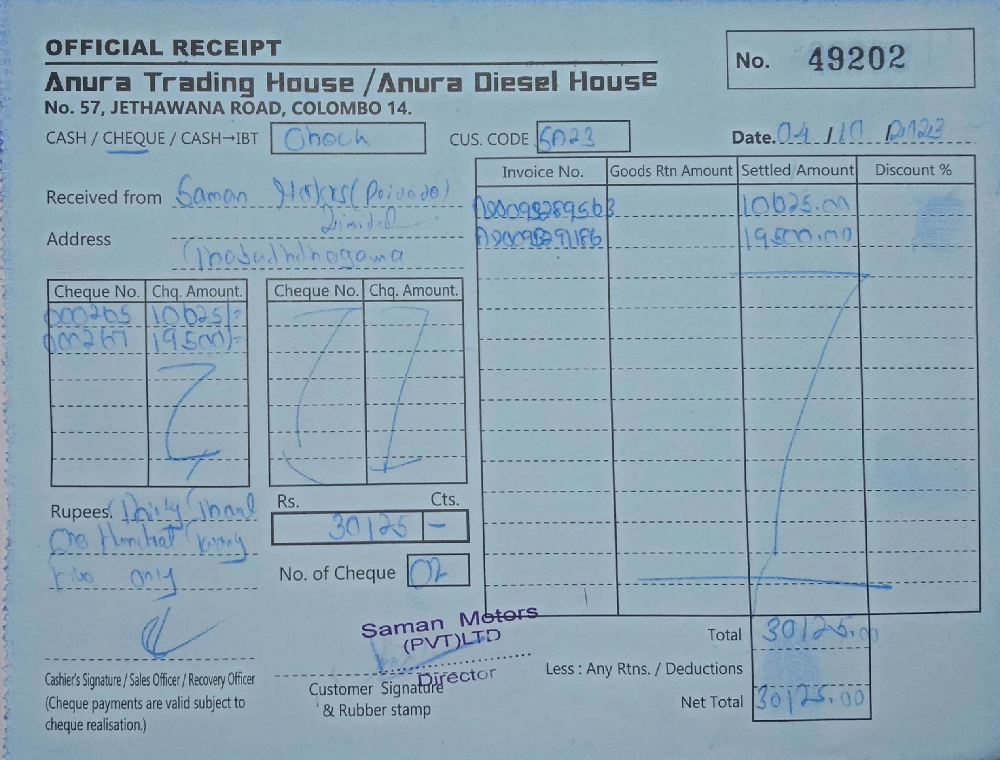 OFFICIAL RECEIPT
No. 49202
Anura Trading House / Anura Diesel House
No. 57, JETHAWANA ROAD, COLOMBO 14.
CASH / CHEQUE / CASH→IBT
CUS. CODE SA23
Date. 04 / 10 / 2023
Received from Saman
Address
Invoice No. Goods Rtn Amount Settled Amount Discount %
10625.00
19500.00
Cheque No. Chq. Amount. Cheque No. Chq. Amount.
000265 10625/-
000267 19500/-
Rupees. Thirty
One
only
Rs. Cts.
30125 –
No. of Cheque 02
Total 30125.00
Less : Any Rtns. / Deductions
Net Total 30125.00
Saman Motors
(PVT)LTD
Director
Cashier's Signature / Sales Officer / Recovery Officer
(Cheque payments are valid subject to
cheque realisation.)
Customer Signature
& Rubber stamp